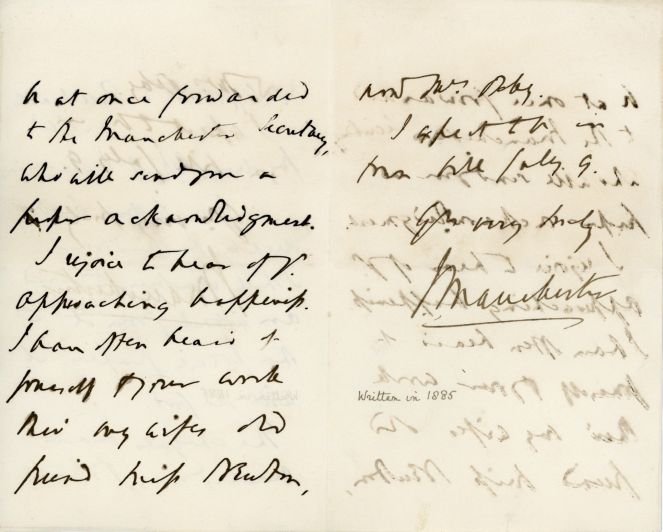 be at once forwarded
to the Manchester Secretary,
who will send you a
proper acknowledgment.
I rejoice to hear of yr.
approaching happiness.
I have often heard of
yourself & your work
thro' my wife's old
friend Miss Newton,
now Mrs
I expect to be in
town till July 9.
Yrs very truly
J Manchester
Written in 1885